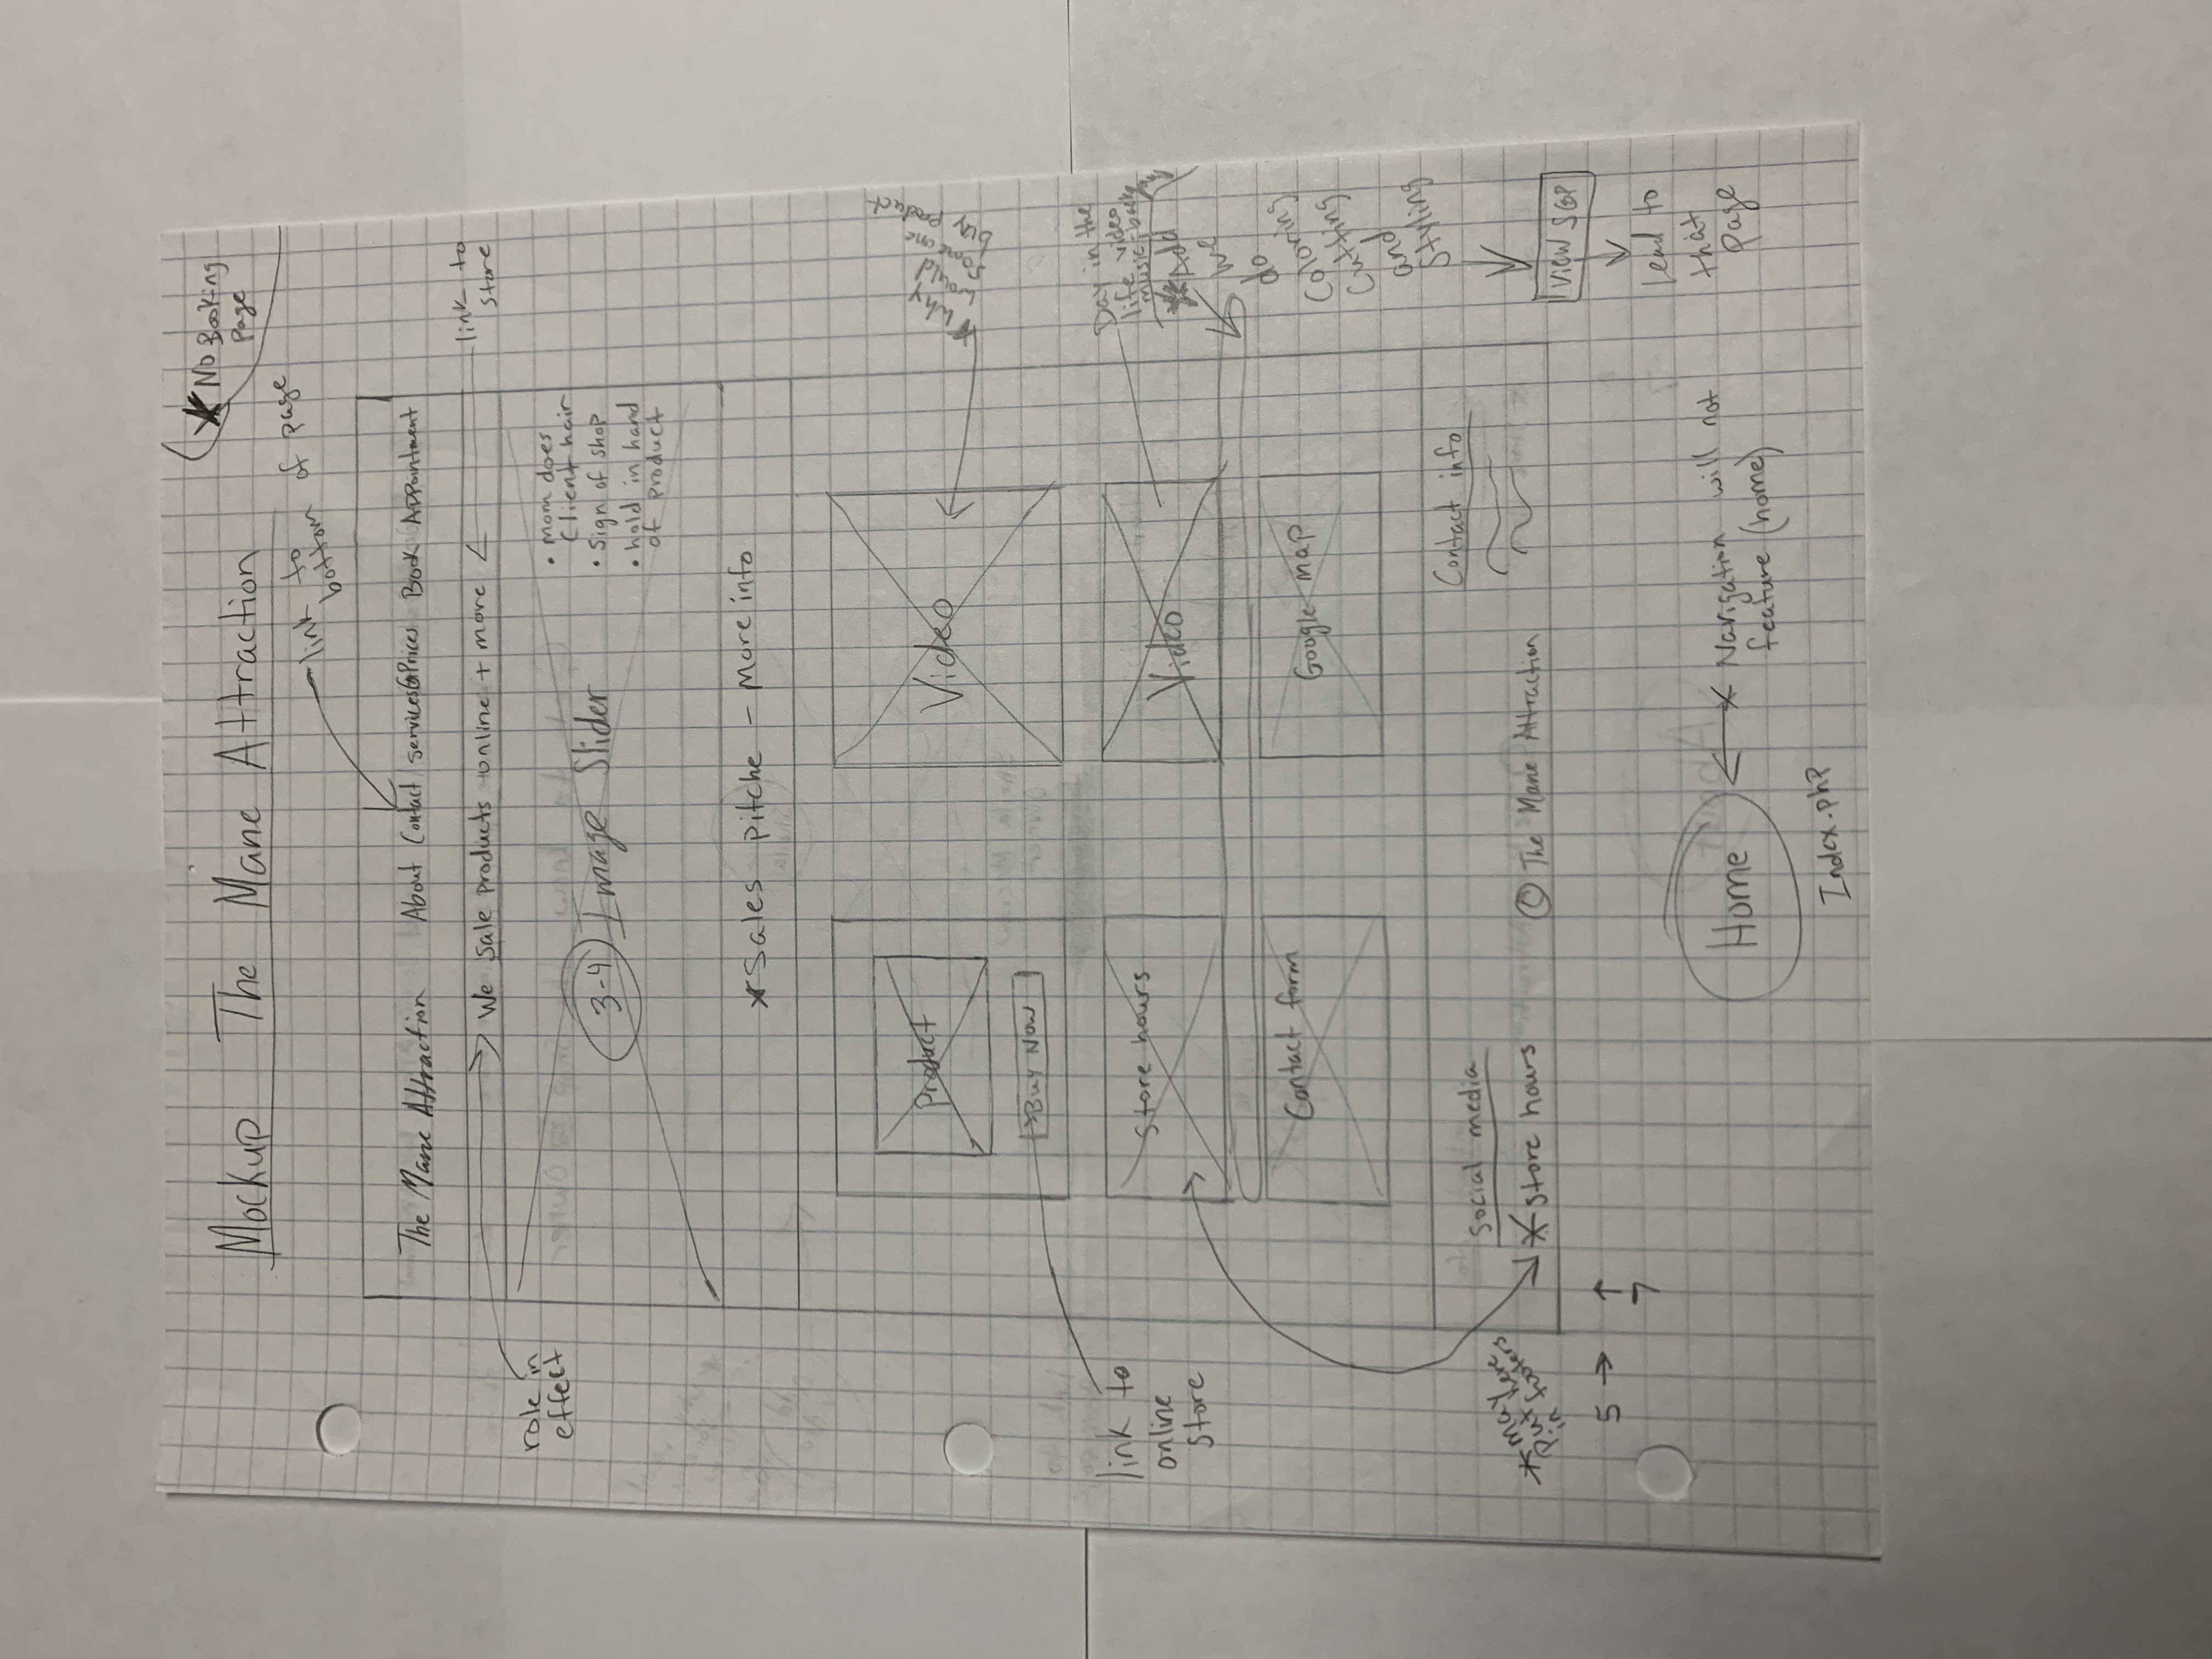 Mockup The Mane Attraction
* No Booking
Page
link to
bottom of page
The Mane Attraction About Contact Services&Prices Book Appointment
We Sale products online + more
link to
store
role in
effect
3-4 Image Slider
• mom does
Client hair
• Sign of shop
• hold in hand
of product
* Sales pitche - More info
Product
Buy Now
Video
* Why
would
someone
buy product
link to
online
store
Store hours
Video
Day in the
life video
music
* Add
we
do
Coloring
Cutting
and
Styling
Contact form
Google map
View S&P
Lead to
that
page
Social media
* Store hours
© The Mane Attraction
Contact info
* may
put here
in footers
5 →
↑
7
Home
* Navigation will not
feature (home)
Index.php